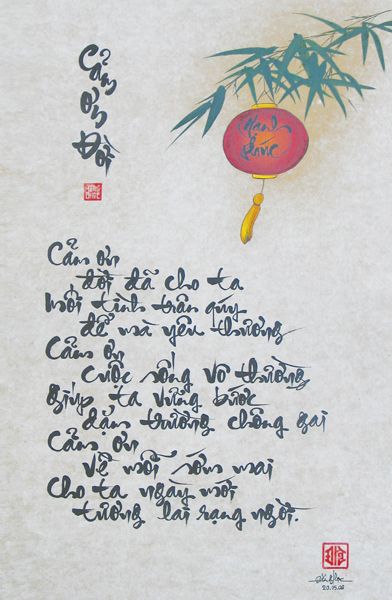 Cảm
ơn
Đời
Hạnh
phúc
Cảm ơn
đời đã cho ta
mối tình trân quý
để mà yêu thương
Cảm ơn
cuộc sống vô thường
giúp ta vững bước
dặm trường chông gai
Cảm ơn
về mỗi sớm mai
Cho ta ngày mới
tương lai rạng ngời.